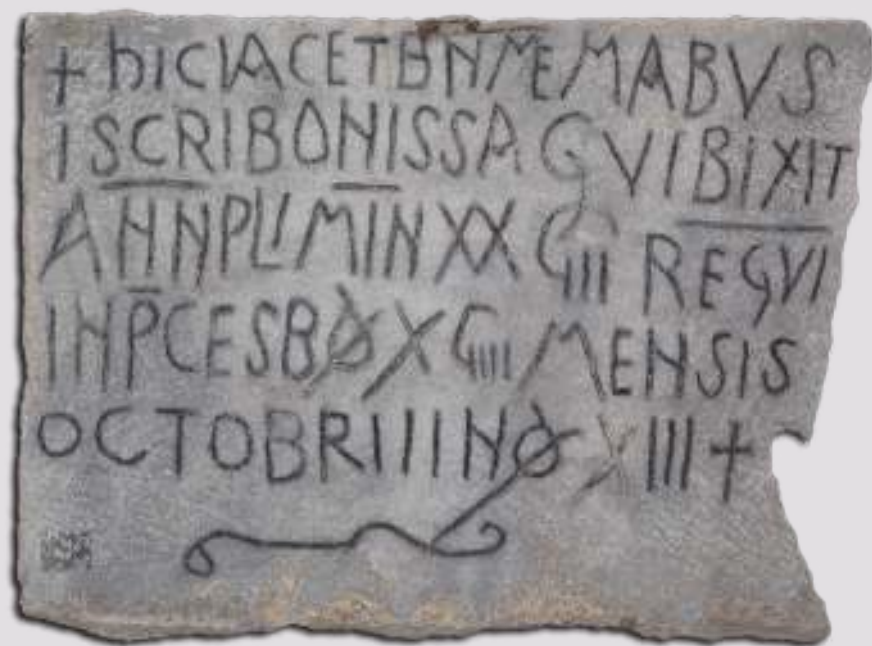 + hIC IACET BN ME MABVS
I SCRIBONISSA QVI BIXIT
ANN PLI MIN XX GIII REQVI
IN PCE SB Ø X GIIII MENSIS
OCTOBRI IIIN Ø XIII +